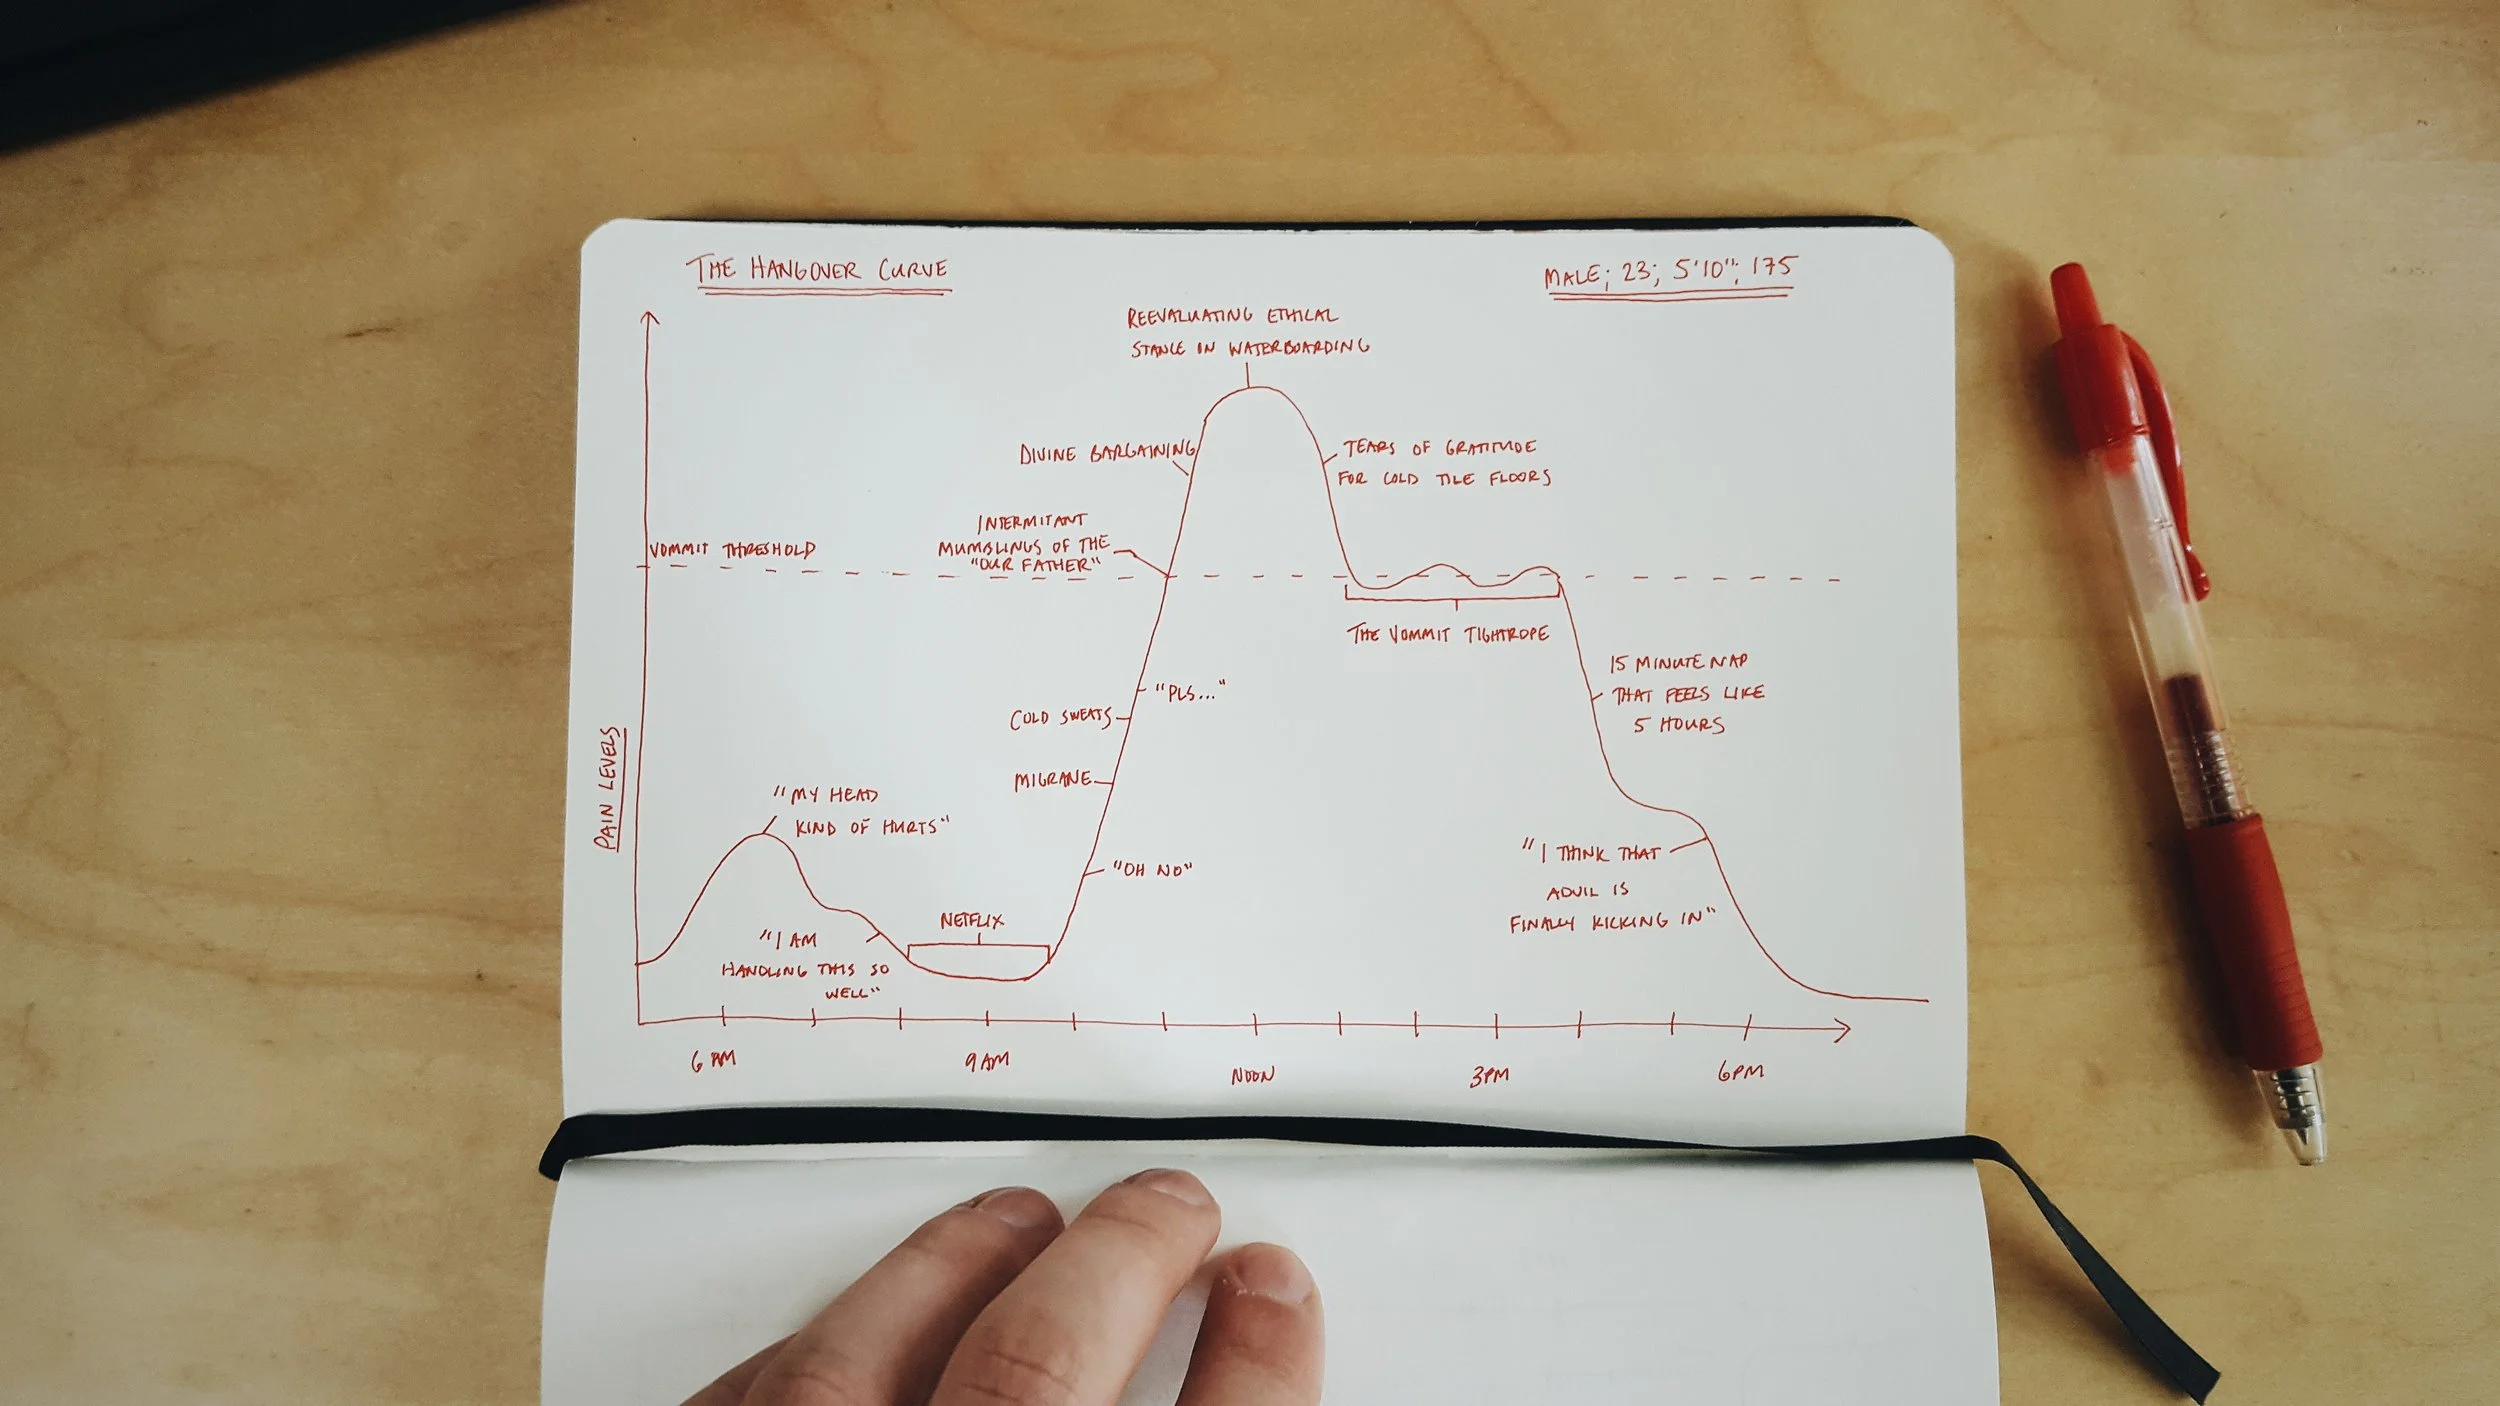 THE HANGOVER CURVE
MALE; 23; 5'10"; 175
REEVALUATING ETHICAL
STANCE ON WATERBOARDING
DIVINE BARGAINING
TEARS OF GRATITUDE
FOR COLD TILE FLOORS
INTERMITANT
MUMBLINGS OF THE
"OUR FATHER"
VOMMIT THRESHOLD
THE VOMMIT TIGHTROPE
15 MINUTE NAP
THAT FEELS LIKE
5 HOURS
"PLS..."
COLD SWEATS
MIGRANE
"OH NO"
PAIN LEVELS
"MY HEAD
KIND OF HURTS"
"I THINK THAT
ADVIL IS
FINALLY KICKING IN"
NETFLIX
"I AM
HANDLING THIS SO
WELL"
6 AM
9 AM
NOON
3PM
6PM